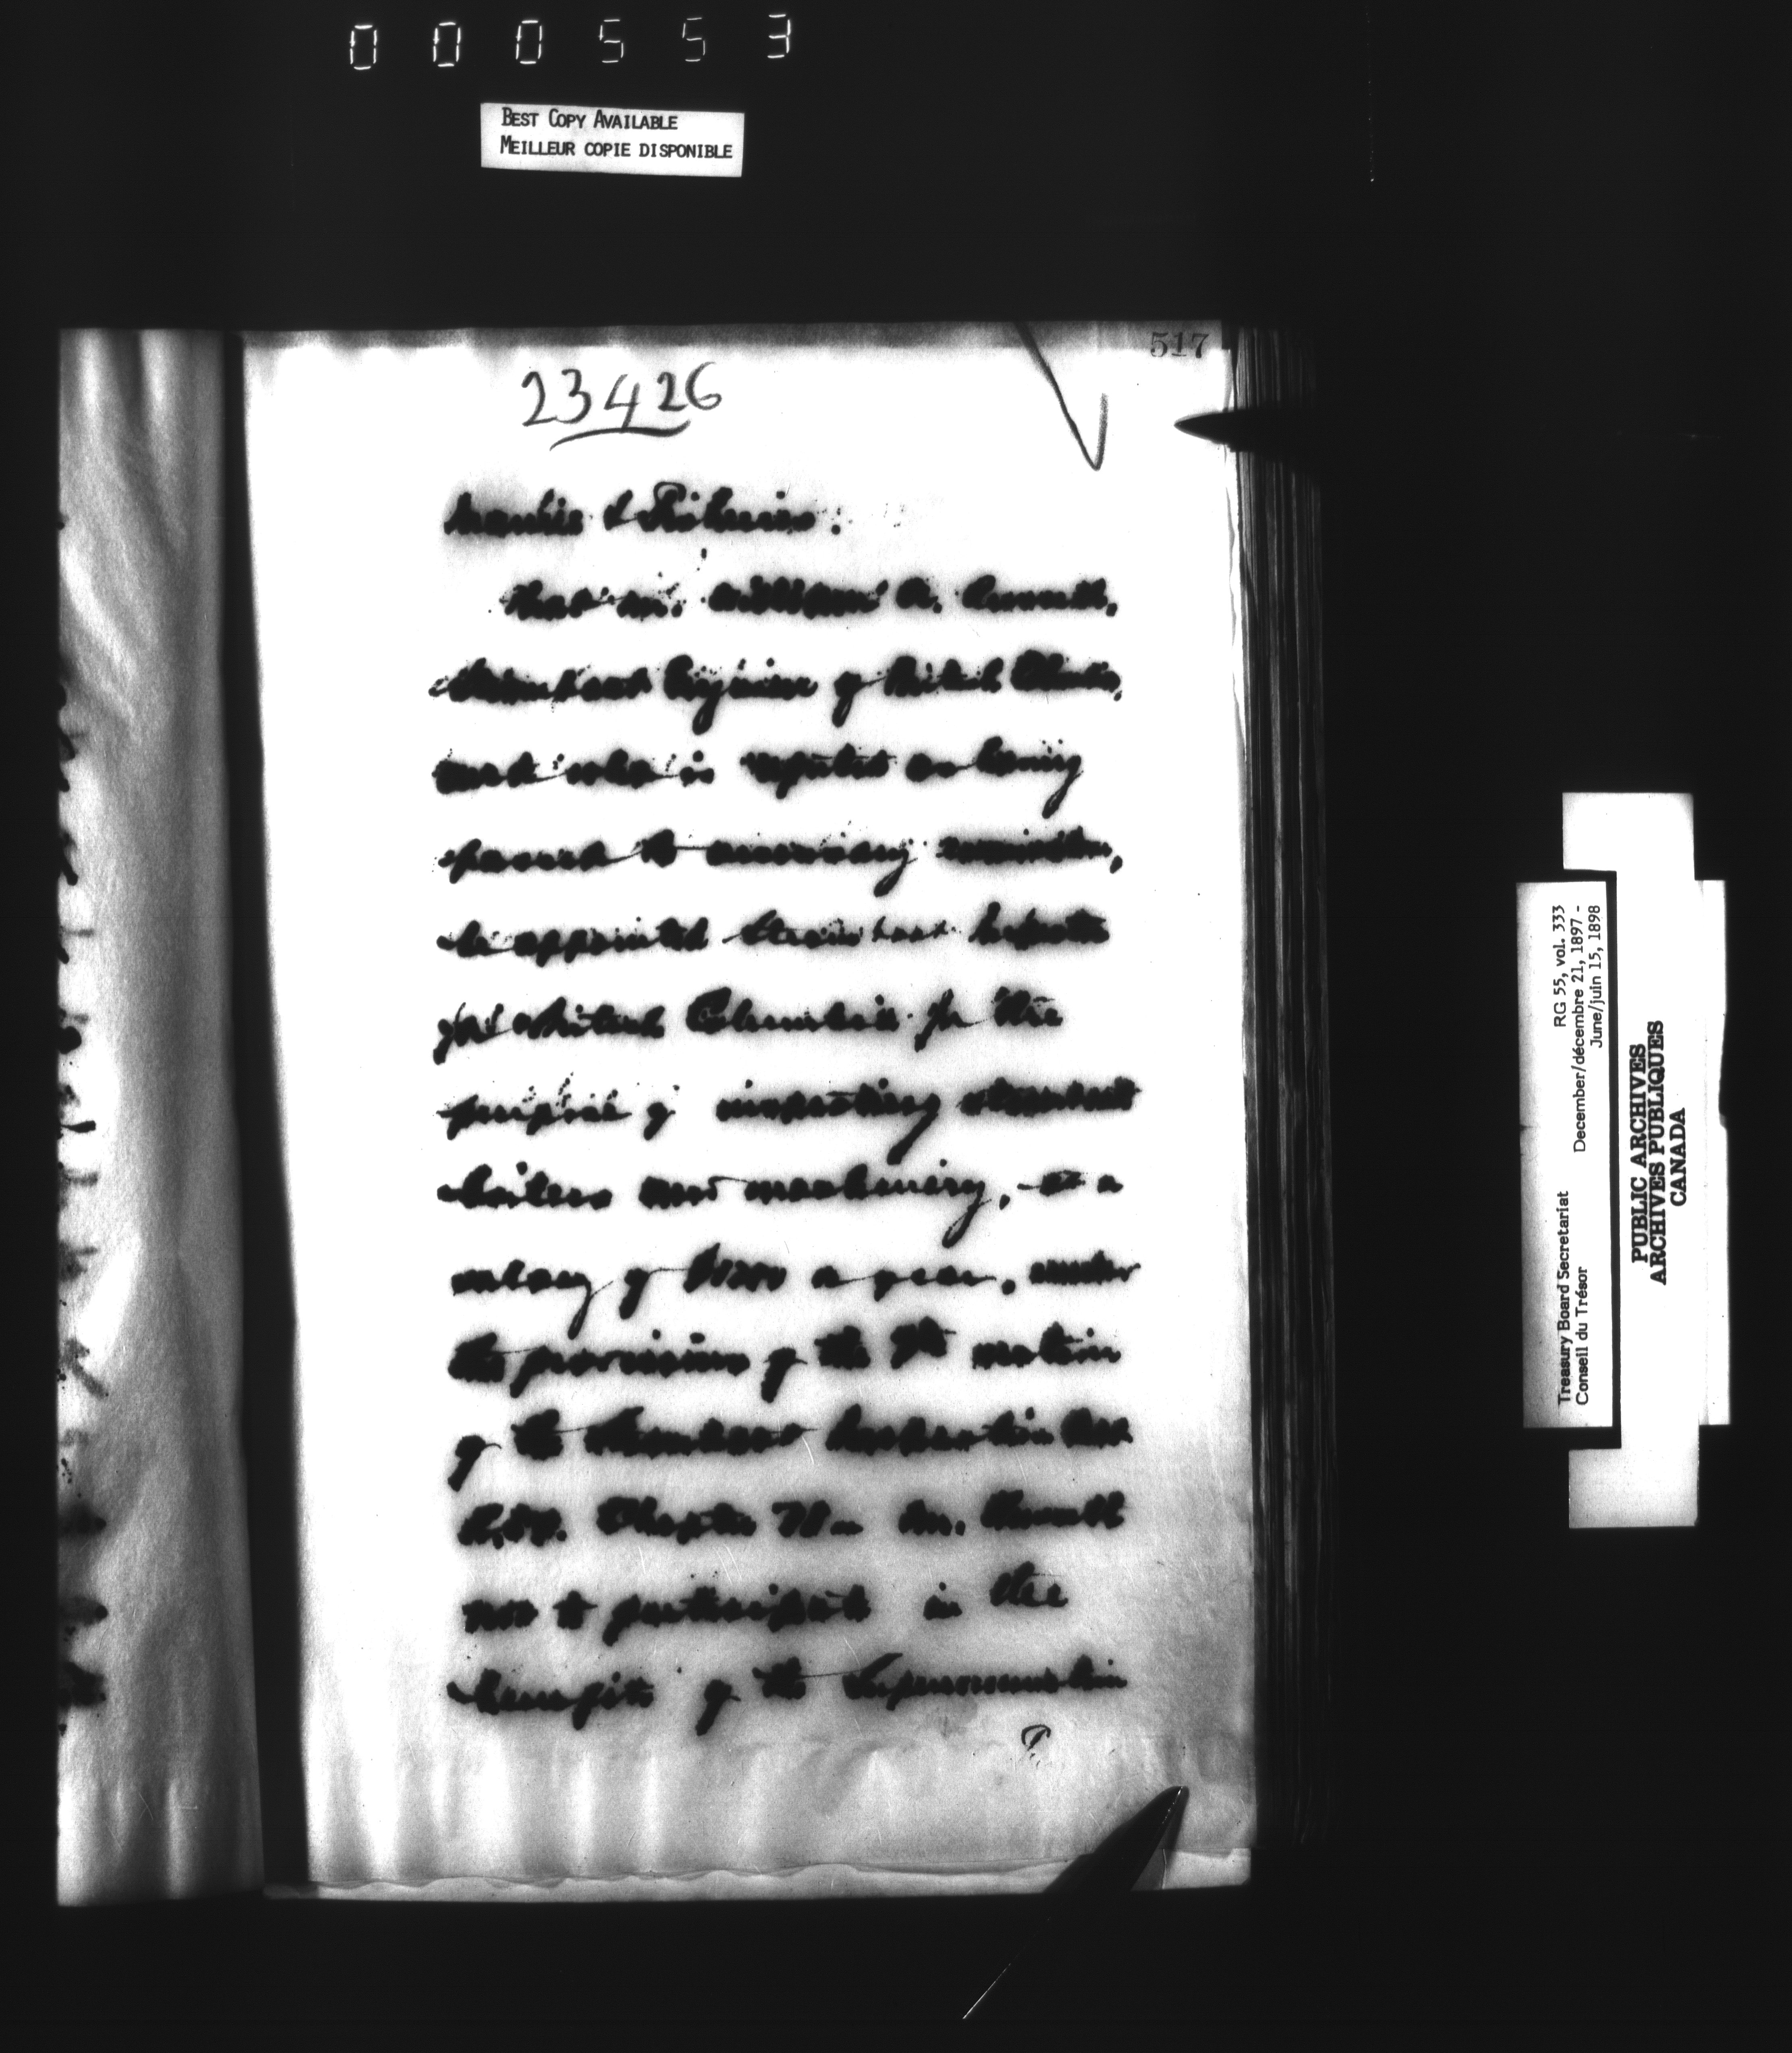 000553
BEST COPY AVAILABLE
MEILLEUR COPIE DISPONIBLE
517
23426
Marine & Fisheries:
That Mr. William A.
Engineer of British
who is reported as having
passed the necessary examination,
be appointed Steamboat Inspector
for British Columbia for the
purpose of inspecting steamboat
boilers and machinery, at a
salary of a year, under
the provisions of the section
of the Steamboat Inspection Act
Chapter 78 Mr.
not to participate in the
benefits of the Superannuation
Treasury Board Secretariat RG 55, vol. 333
Conseil du Trésor December/décembre 21, 1897 -
June/juin 15, 1898
PUBLIC ARCHIVES
ARCHIVES PUBLIQUES
CANADA